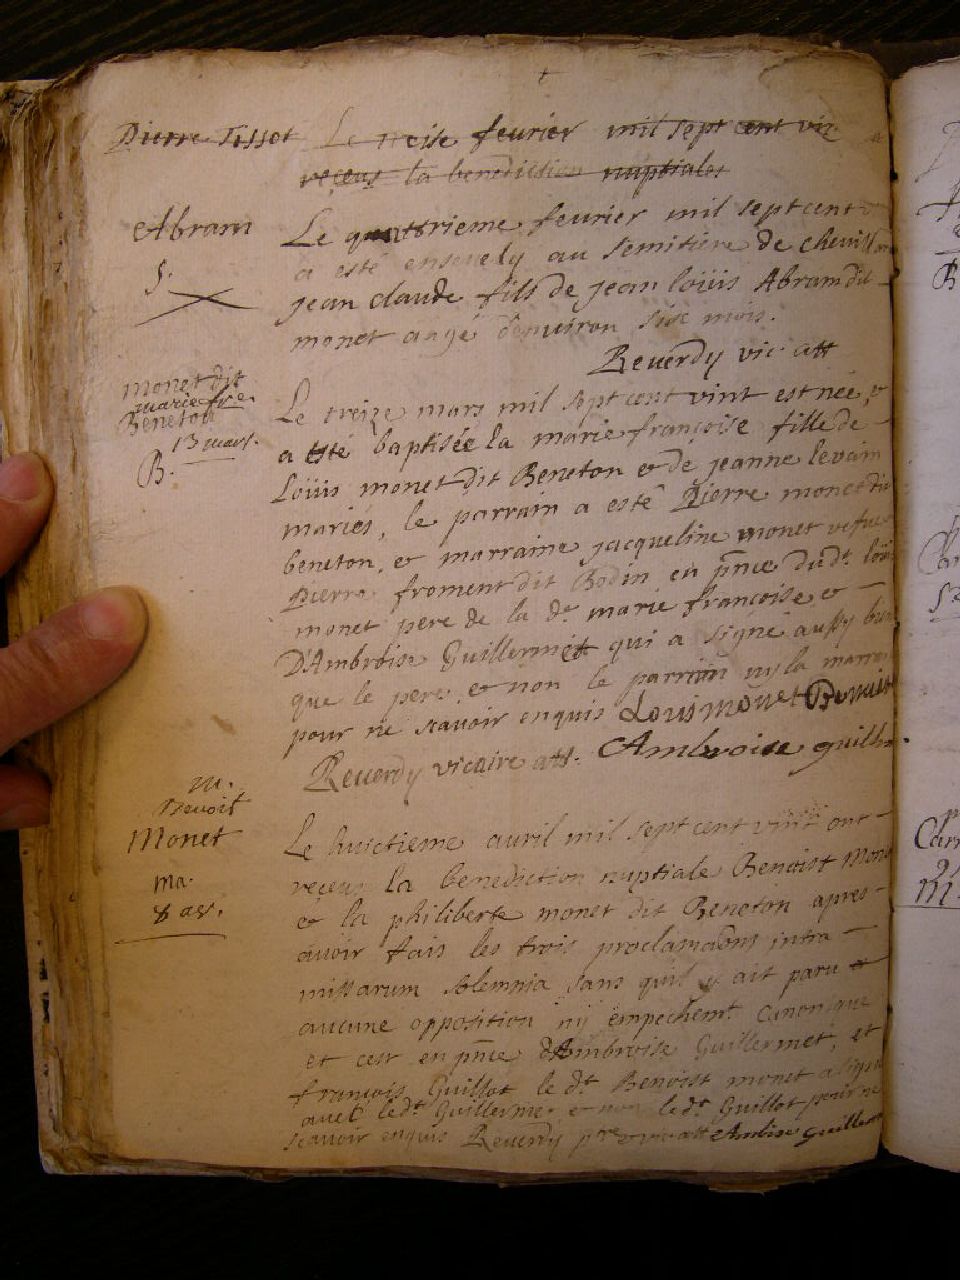 Pierre Tissot Le treise feurier mil sept cent vin
receus la benediction nuptiales
Abram
S.
Le quattrieme feurier mil sept cent
a esté enseuely au semitiere de cheuill
jean claude fils de jean loüis Abram dit
monet aagé denuiron six mois.
Reuerdy vic att
monet dit
marie fre.
Beneton
13 mars.
B.
Le treize mars mil sept cent vint est née, &
a esté baptisée la marie françoise fille de
Loüis monet dit Beneton & de jeanne levain
mariés, le parrain a esté Pierre monet dit
beneton, & marraine jacqueline monet vefue
Pierre froment dit Bodin en pnce dudt. loüi
monet pere de la de. marie françoise &
D'Ambroise Guillermet qui a signé aussy bien
que le pere, & non le parrain ny la marrai
pour ne scavoir enquis Louis monet Benoit
Reuerdy vicaire att. Ambroise guille
m.
Benoit
Monet
ma.
8 av.
Le huictieme auril mil sept cent vint ont
receus la benediction nuptiale Benoist Mone
& la philiberte monet dit Beneton apres
auoir fais les trois proclamaõns intra
missarum solemnia sans quil y ait paru
aucune opposition ny empechemt. canonique
et cest en pnce dAmbroise Guillermet, et
françois Guillot le dt. Benoist monet a signé
auec ledt. Guillermet & non ledt. Guillot pour ne
scauoir enquis Reuerdy ptre & vic att Ambroise guillerm